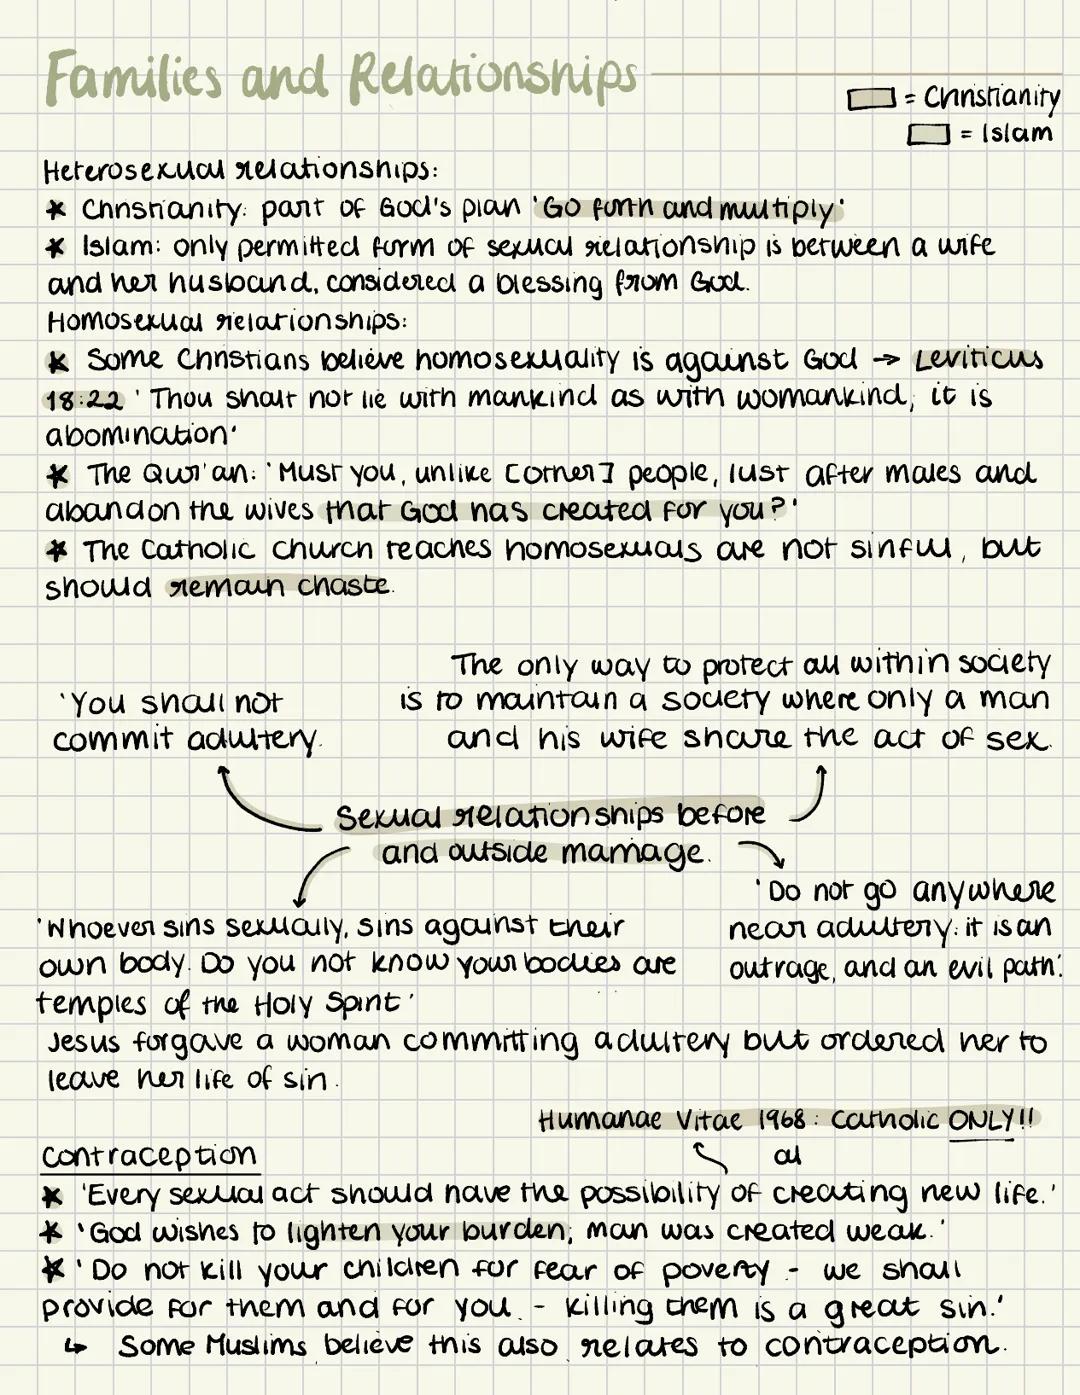 Families and Relationships
= Christianity
= Islam
Heterosexual relationships:
* Christianity: part of God's plan 'Go forth and multiply'
* Islam: only permitted form of sexual relationship is between a wife
and her husband, considered a blessing from God.
Homosexual relationships:
* Some Christians believe homosexuality is against God → Leviticus
18:22 'Thou shalt not lie with mankind as with womankind, it is
abomination'
* The Qur'an: 'Must you, unlike [other] people, lust after males and
abandon the wives that God has created for you?'
* The Catholic church teaches homosexuals are not sinful, but
should remain chaste.
'You shall not
commit adultery.
The only way to protect all within society
is to maintain a society where only a man
and his wife share the act of sex.
Sexual relationships before
and outside marriage.
'Do not go anywhere
near adultery: it is an
outrage, and an evil path'.
'Whoever sins sexually, sins against their
own body. Do you not know your bodies are
temples of the Holy Spirit'
Jesus forgave a woman committing adultery but ordered her to
leave her life of sin.
Humanae Vitae 1968: Catholic ONLY!!
Contraception
al
* 'Every sexual act should have the possibility of creating new life.'
* 'God wishes to lighten your burden; man was created weak.'
* 'Do not kill your children for fear of poverty - we shall
provide for them and for you. - killing them is a great sin.'
↳ Some Muslims believe this also relates to contraception.